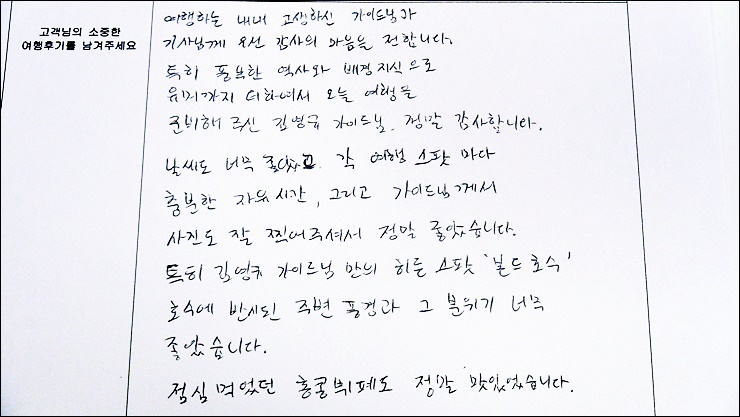 고객님의 소중한
여행후기를 남겨주세요
여행하는 내내 고생하신 가이드님과
기사님께 우선 감사의 마음을 전합니다.
특히 풍부한 역사와 배경지식으로
유머까지 더하여서 오늘 여행을
준비해 주신 김영규 가이드님. 정말 감사합니다.
날씨도 너무 좋았고. 각 여행 스팟 마다
충분한 자유시간, 그리고 가이드님께서
사진도 잘 찍어주셔서 정말 좋았습니다.
특히 김영규 가이드님 만의 히든 스팟 '보드 호수'
호수에 반사된 주변 풍경과 그 분위기 너무
좋았습니다.
점심 먹었던 홍콜뷔페도 정말 맛있었습니다.